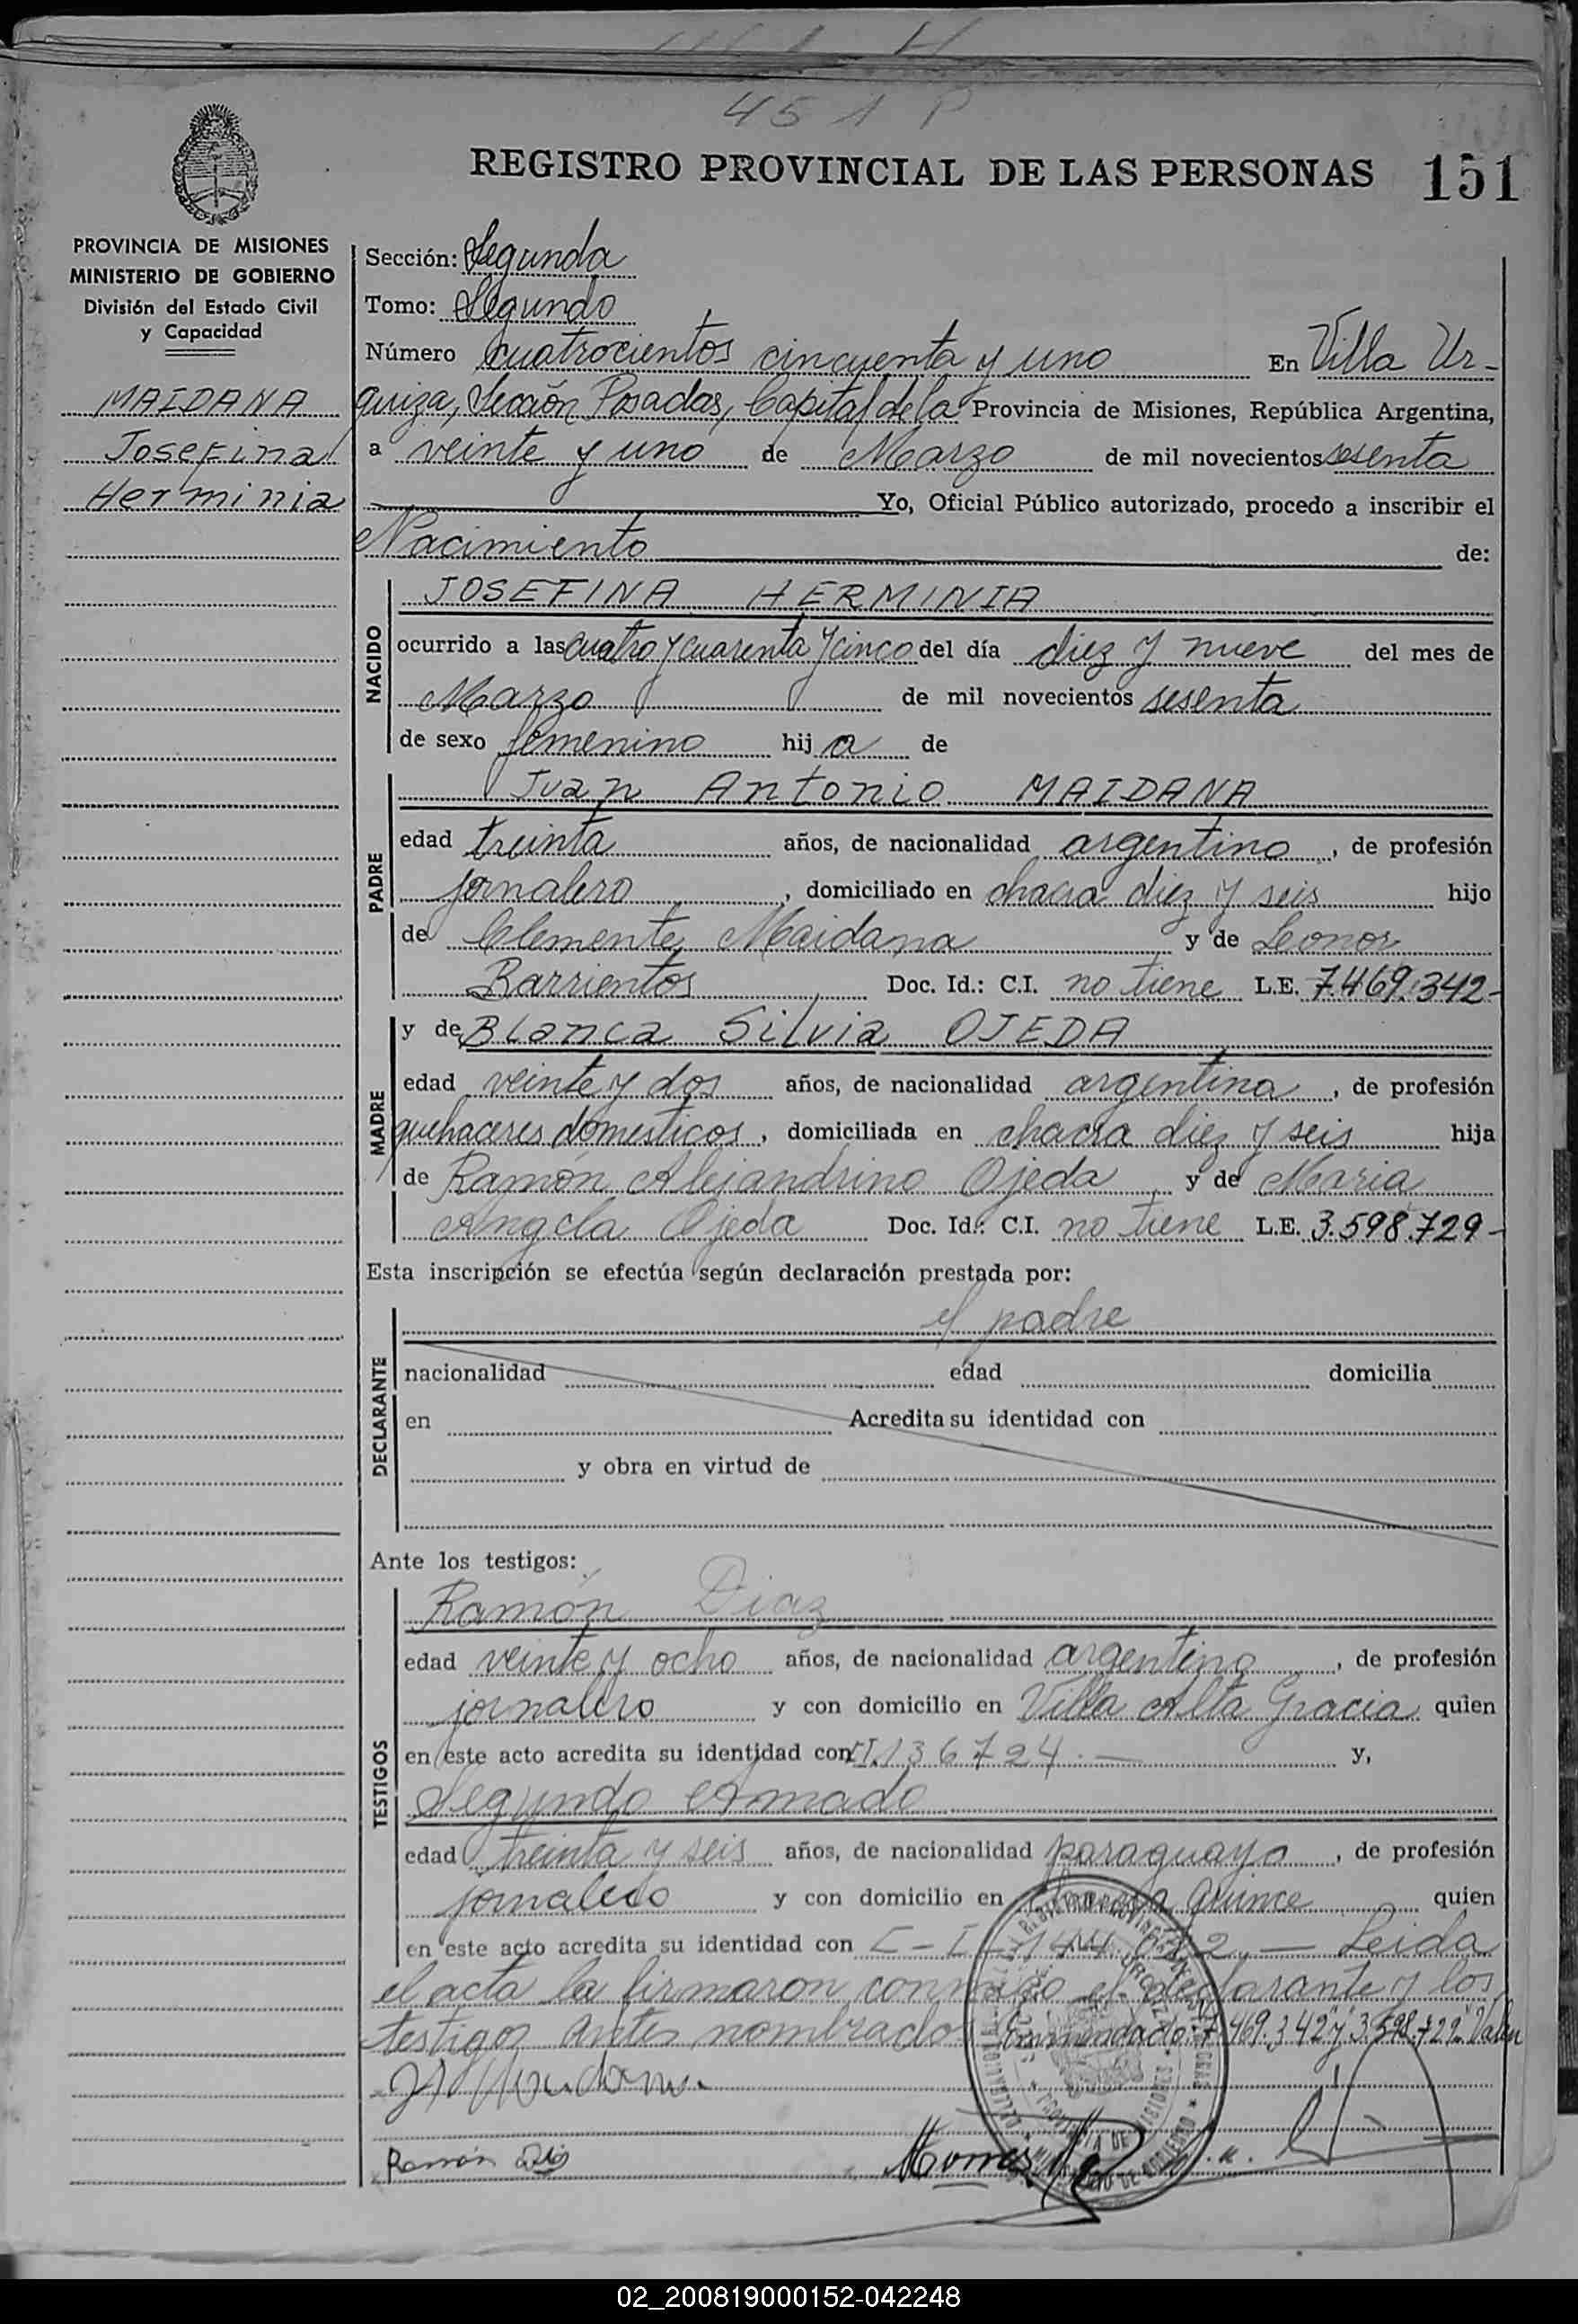 451 P
REGISTRO PROVINCIAL DE LAS PERSONAS 151
PROVINCIA DE MISIONES
MINISTERIO DE GOBIERNO
División del Estado Civil
y Capacidad
MAIDANA
Josefina
Herminia
Sección: Segunda
Tomo: Segundo
Número cuatrocientos cincuenta y uno En Villa Ur-
quiza, Sección Posadas, Capital de la Provincia de Misiones, República Argentina,
a veinte y uno de Marzo de mil novecientos sesenta
Yo, Oficial Público autorizado, procedo a inscribir el
Nacimiento de:
NACIDO
JOSEFINA HERMINIA
ocurrido a las cuatro y cuarenta y cinco del día diez y nueve del mes de
Marzo de mil novecientos sesenta
de sexo femenino hija de
PADRE
Juan Antonio MAIDANA
edad treinta años, de nacionalidad argentino, de profesión
jornalero, domiciliado en chacra diez y seis hijo
de Clemente Maidana y de Leonor
Barrientos Doc. Id.: C.I. no tiene L.E. 7.469.342-
MADRE
y de Blanca Silvia OJEDA
edad veinte y dos años, de nacionalidad argentina, de profesión
quehaceres domesticos, domiciliada en chacra diez y seis hija
de Ramón Alejandrino Ojeda y de Maria
Angela Ojeda Doc. Id.: C.I. no tiene L.E. 3.598.729-
Esta inscripción se efectúa según declaración prestada por:
DECLARANTE
el padre
nacionalidad edad domicilia
en Acredita su identidad con
y obra en virtud de
Ante los testigos:
TESTIGOS
Ramón Diaz
edad veinte y ocho años, de nacionalidad argentino, de profesión
jornalero y con domicilio en Villa Alta Gracia quien
en este acto acredita su identidad con CI.136724.— y,
Segundo Amado
edad treinta y seis años, de nacionalidad paraguayo, de profesión
jornalero y con domicilio en chacra quince quien
en este acto acredita su identidad con C-I- — Leida
el acta la firmaron conmigo el declarante y los
testigos antes nombrados Enmendado: 7.469.342 "y" 3.598.729 "Valen
Ramón
02_200819000152-042248